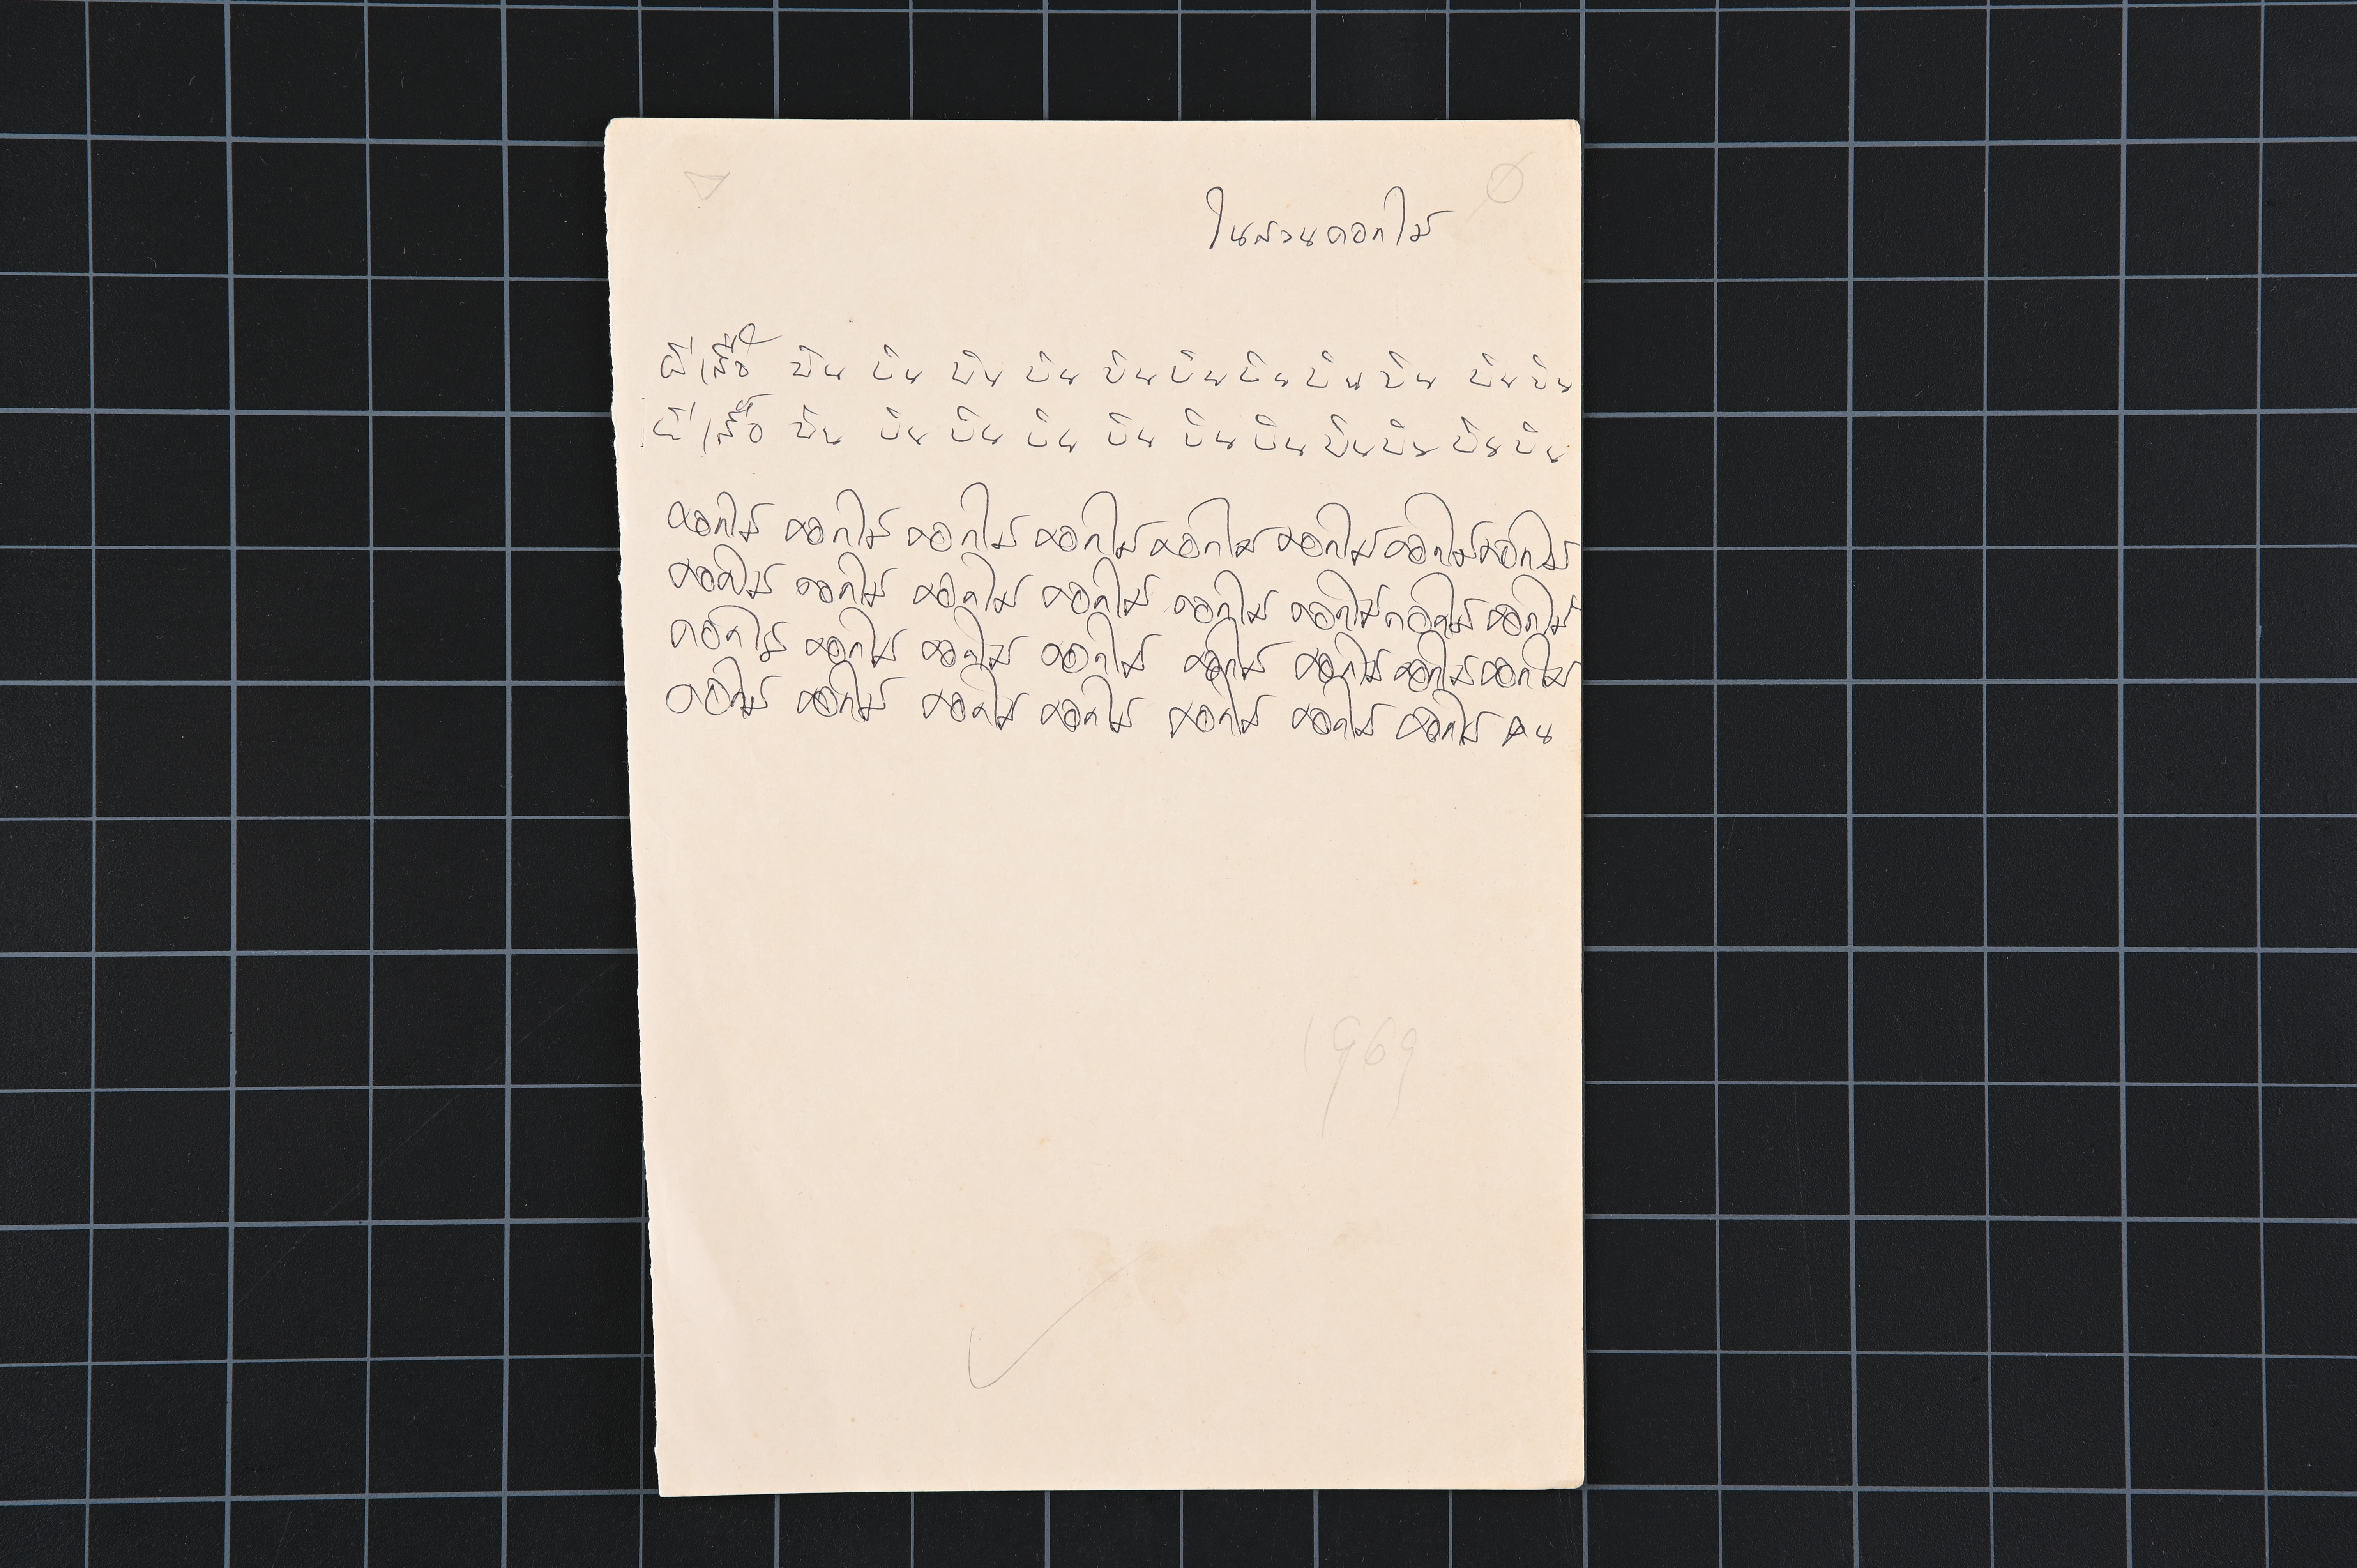 ในสวนดอกไม้
ผีเสื้อ บิน บิน บิน บิน บิน บิน บิน บิน บิน บิน บิน
ผีเสื้อ บิน บิน บิน บิน บิน บิน บิน บิน บิน บิน บิน
ดอกไม้ ดอกไม้ ดอกไม้ ดอกไม้ ดอกไม้ ดอกไม้ ดอกไม้ ดอกไม้
ดอกไม้ ดอกไม้ ดอกไม้ ดอกไม้ ดอกไม้ ดอกไม้ ดอกไม้ ดอกไม้
ดอกไม้ ดอกไม้ ดอกไม้ ดอกไม้ ดอกไม้ ดอกไม้ ดอกไม้ ดอกไม้
ดอกไม้ ดอกไม้ ดอกไม้ ดอกไม้ ดอกไม้ ดอกไม้ ดอกไม้ คน
1969